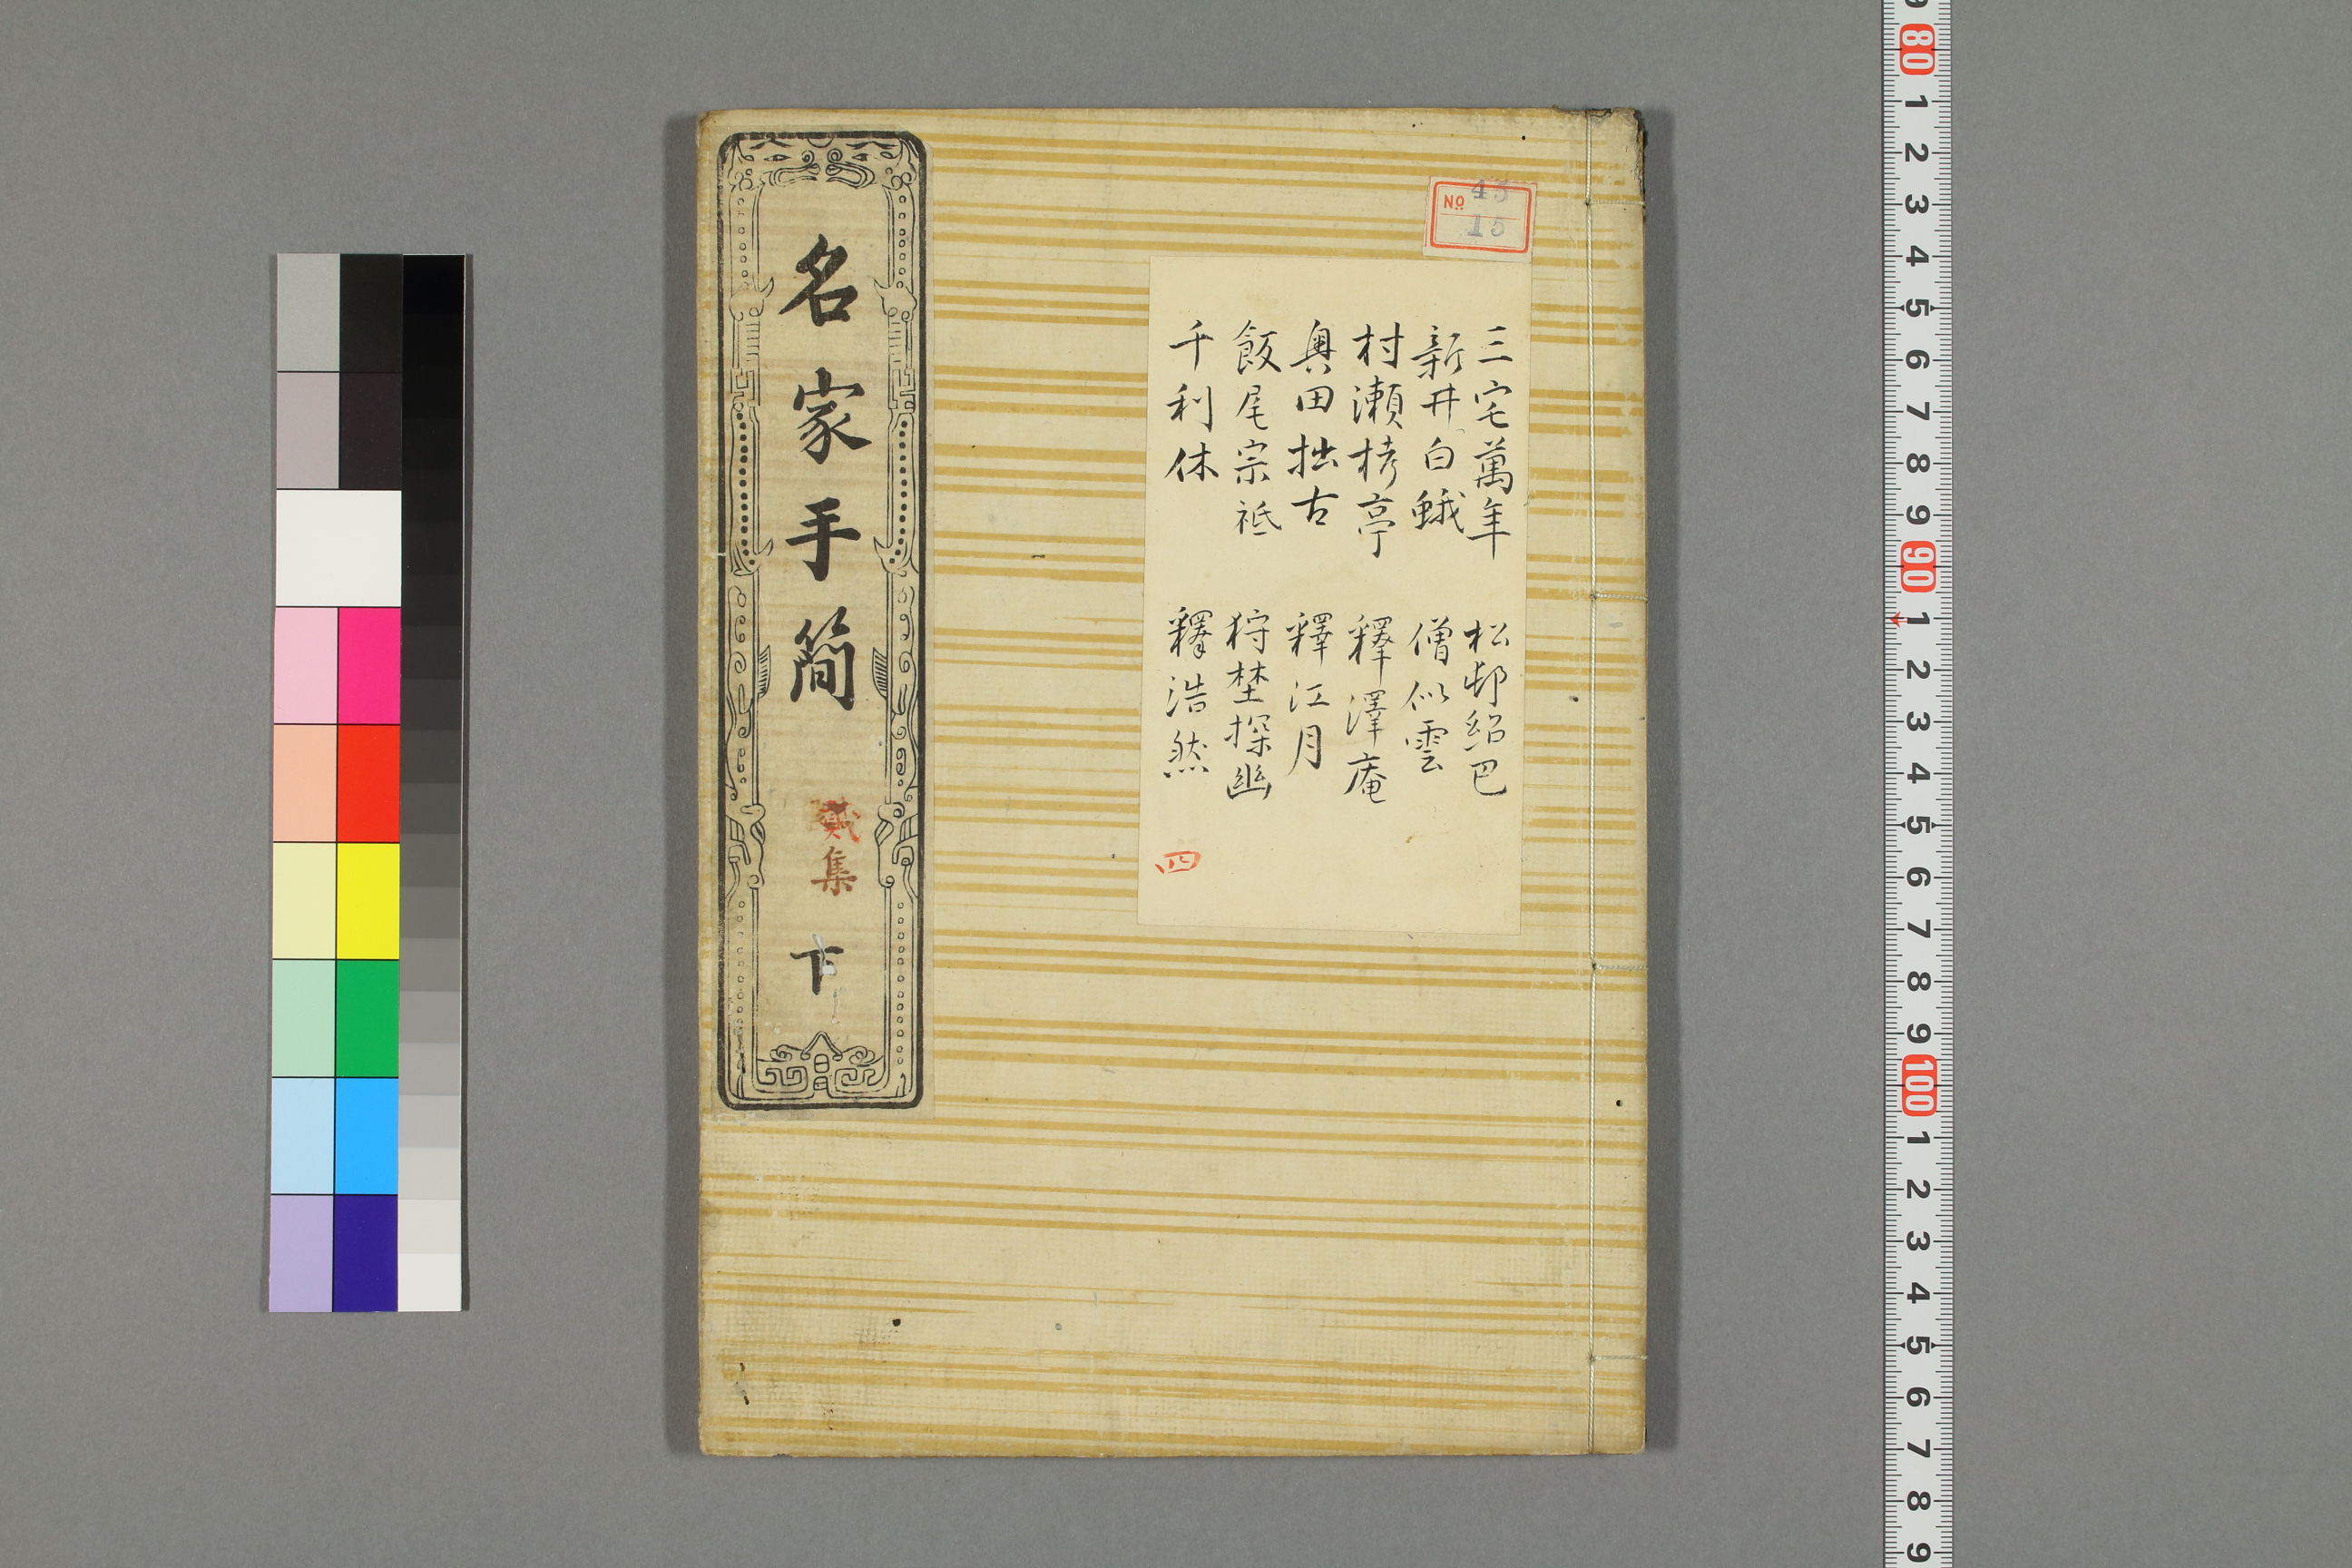 三宅萬年 松邨紹巴
新井白蛾 僧似雲
村瀬栲亭 釋澤庵
奥田拙古 釋江月
飯尾宗祇 狩埜探幽
千利休 釋浩然
四
No 45
15
名家手簡 貳集 下
9 80 1 2 3 4 5 6 7 8 9 90 1 2 3 4 5 6 7 8 9 100 1 2 3 4 5 6 7 8 9